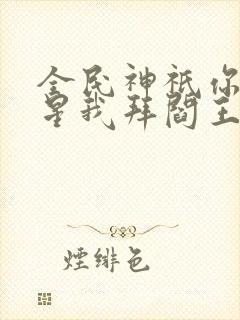 全民神祇你
星我拜閻王
煙緋色